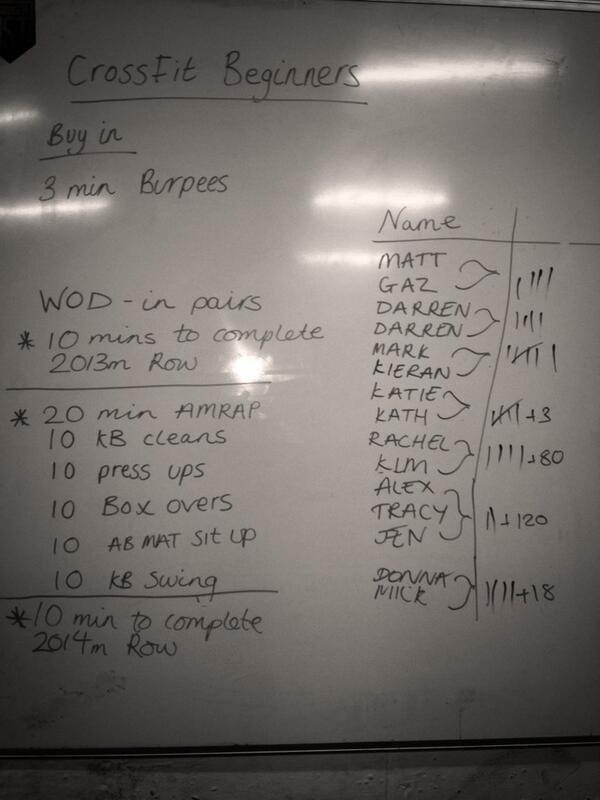 CrossFit Beginners
Buy in
3 min Burpees
WOD - in pairs
* 10 mins to complete
2013m Row
* 20 min AMRAP
10 KB cleans
10 press ups
10 Box overs
10 AB MAT Sit UP
10 KB Swing
* 10 min to complete
2014m Row
Name
MATT
GAZ
DARREN
DARREN
MARK
KIERAN
KATIE
KATH
+3
RACHEL
KIM
+80
ALEX
TRACY
JEN
+120
DONNA
MICK
+18